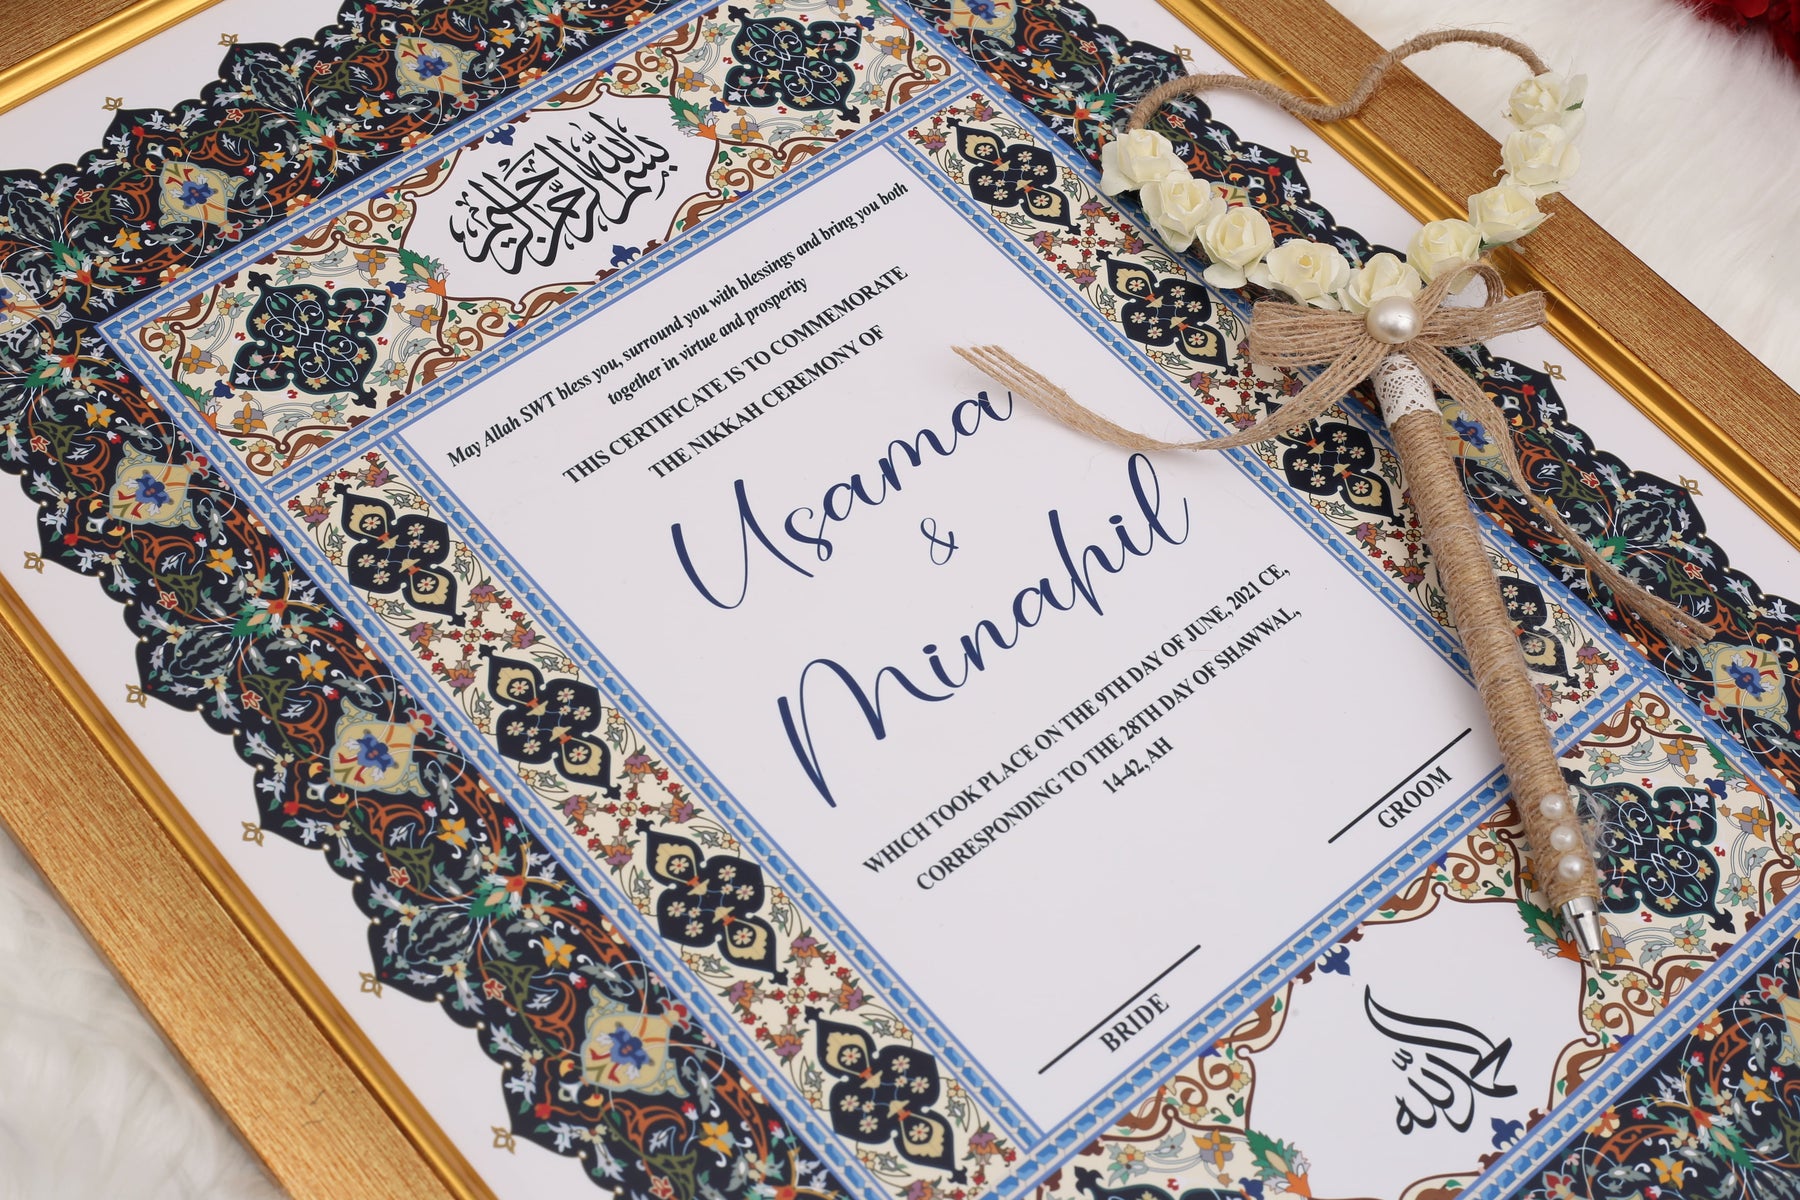 بسم الله الرحمن الرحيم
May Allah SWT bless you, surround you with blessings and bring you both
together in virtue and prosperity
THIS CERTIFICATE IS TO COMMEMORATE
THE NIKKAH CEREMONY OF
Usama
&
Minahil
WHICH TOOK PLACE ON THE 9TH DAY OF JUNE, 2021 CE,
CORRESPONDING TO THE 28TH DAY OF SHAWWAL,
14-42, AH
BRIDE
GROOM
الحمد لله